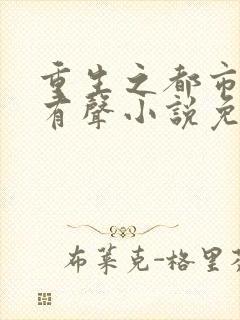 重生之都市
有聲小說免
布萊克-格里芬